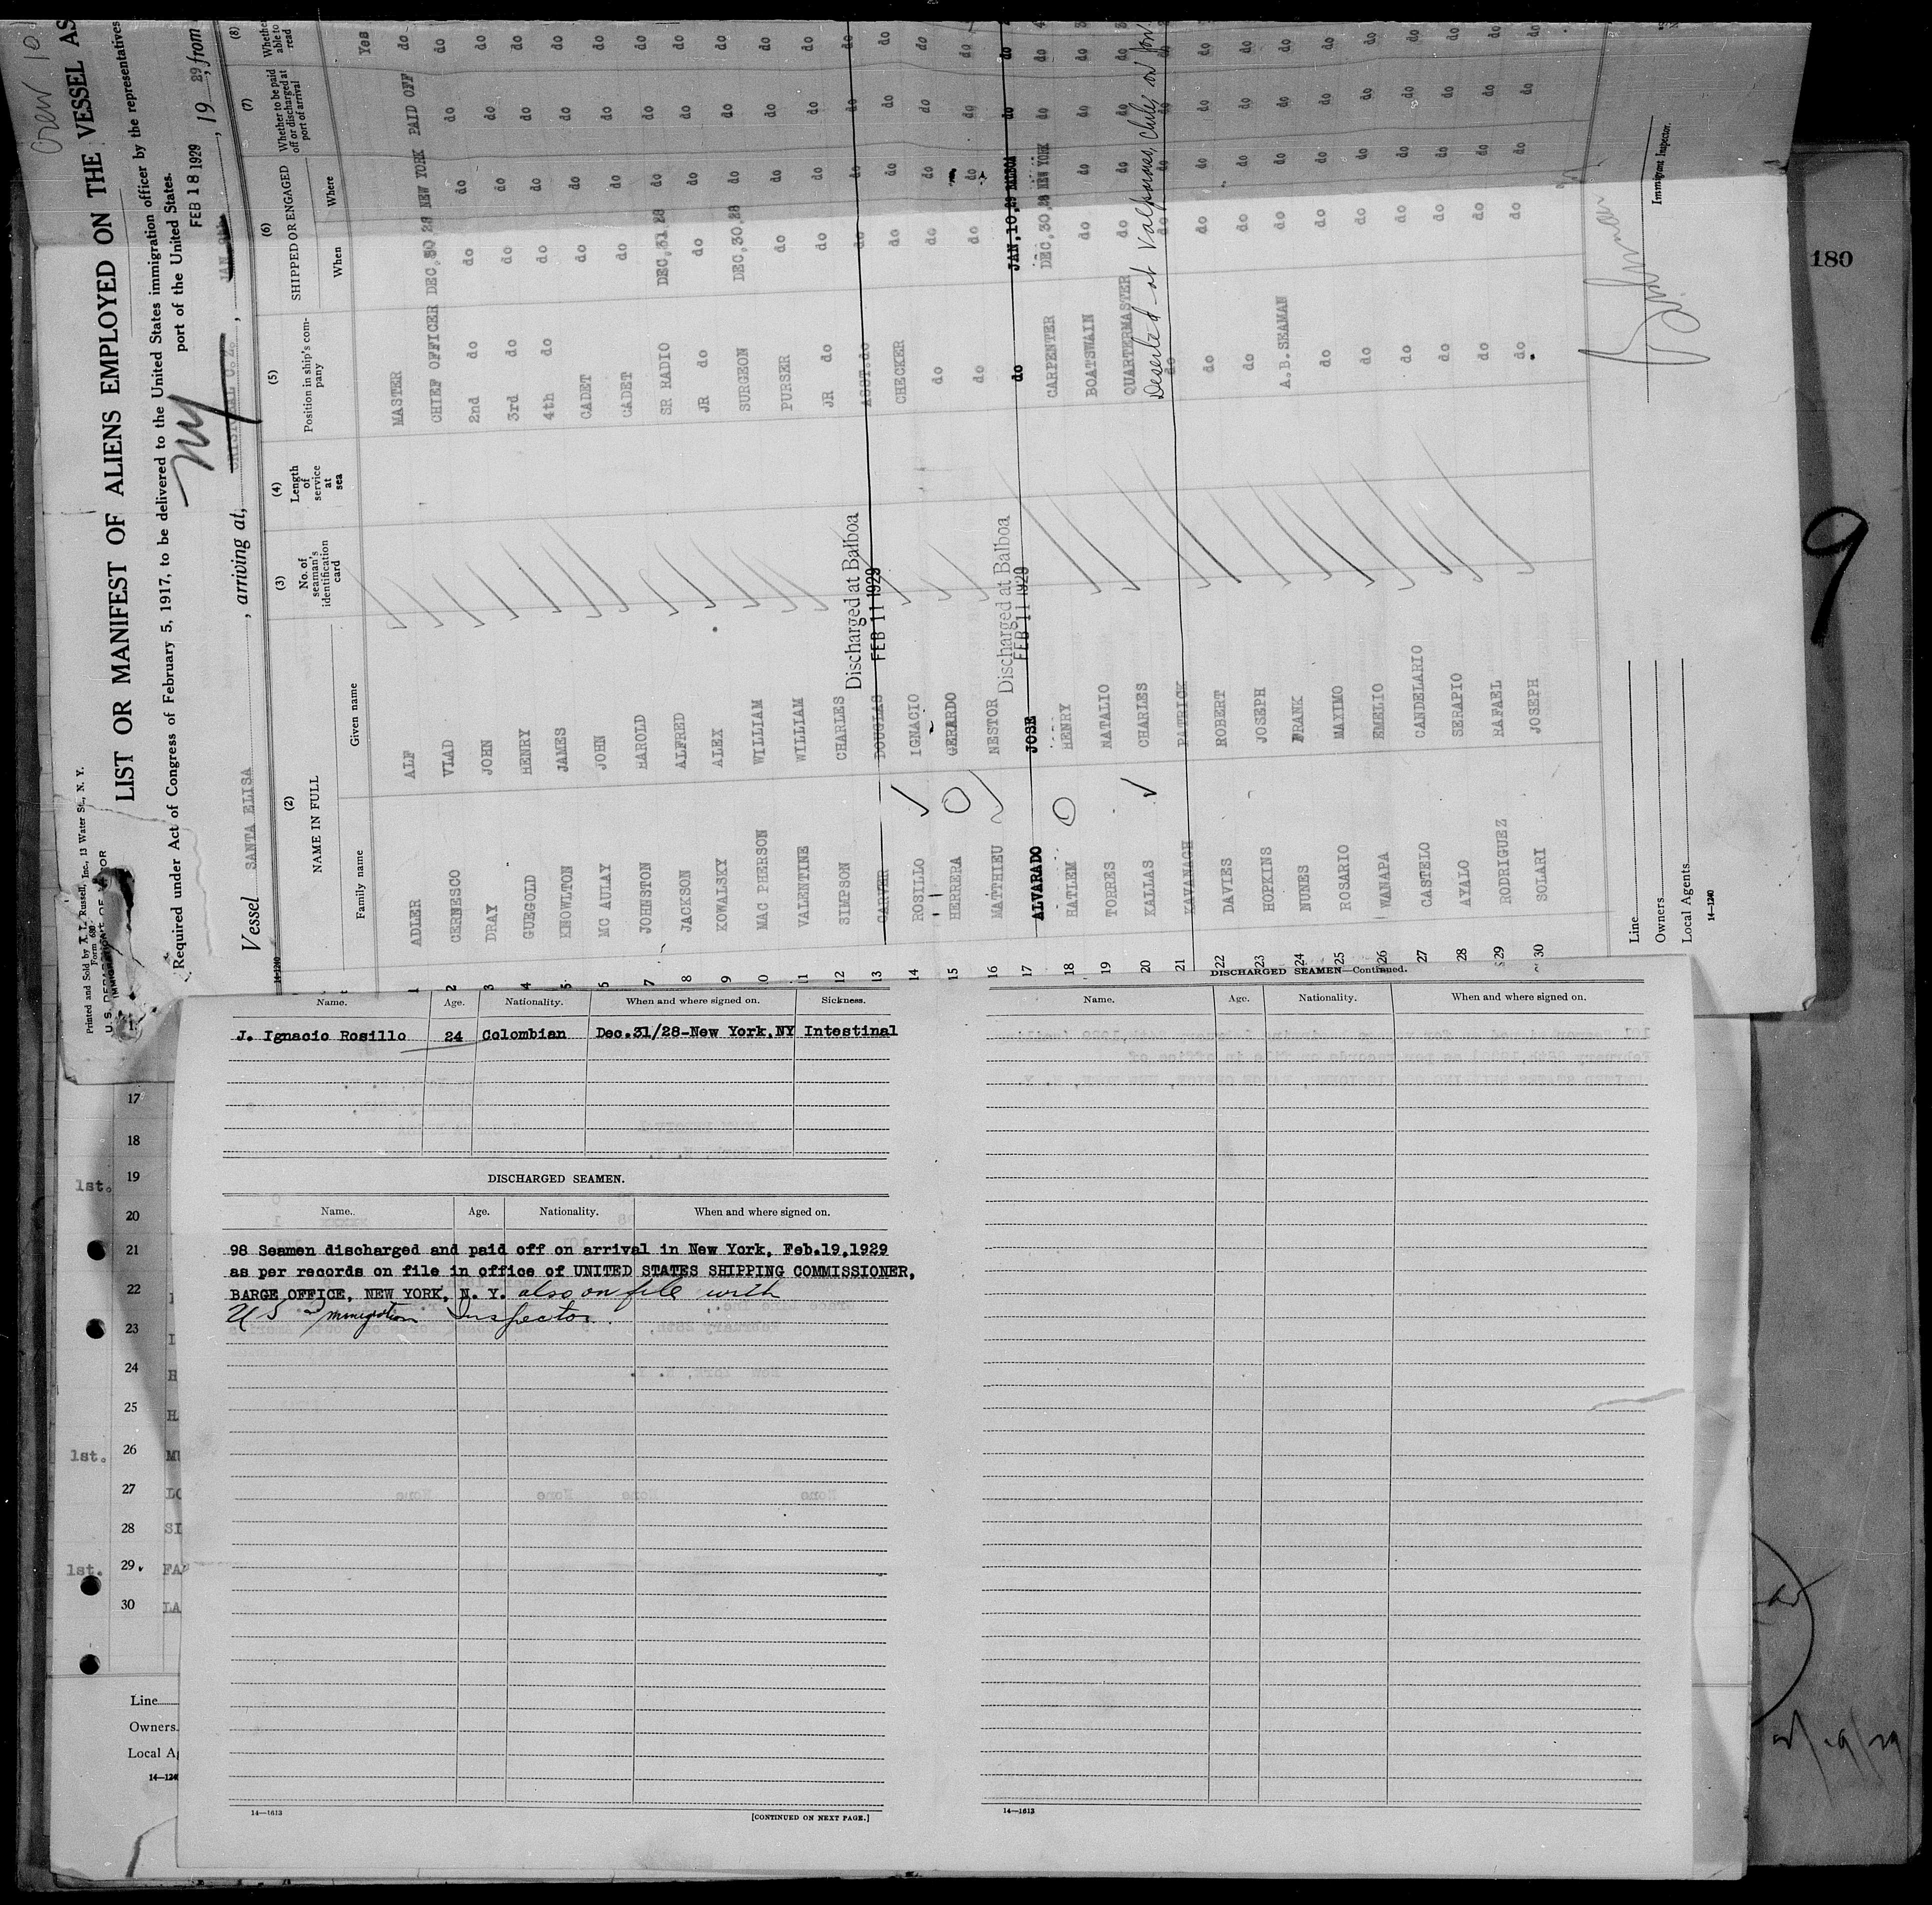 Crew 10
Printed and Sold by A. L. Russell, Inc., 13 Water St., N. Y.
Form 680
U. S. DEPARTMENT OF LABOR
LIST OR MANIFEST OF ALIENS EMPLOYED ON THE VESSEL AS
Required under Act of Congress of February 5, 1917, to be delivered to the United States immigration officer by the representatives
port of the United States.
NY
FEB 18 1929
Vessel SANTA ELISA, arriving at, CRISTOBAL C.Z., 19 29, from
14-1240
(2) NAME IN FULL Family name Given name
(3) No. of seaman's identification card
(4) Length of service at sea
(5) Position in ship's company
(6) SHIPPED OR ENGAGED When Where
(7) Whether to be paid off or discharged at port of arrival
(8) Whether able to read
1 ADLER ALF MASTER DEC,30,28 NEW YORK PAID OFF Yes
2 CERNESCO VLAD CHIEF OFFICER do do do do
3 DRAY JOHN 2nd do do do do do
4 GUEGOLD HENRY 3rd do do do do do
5 KNOWLTON JAMES 4th do do do do do
6 MC AULAY JOHN CADET do do do do
7 JOHNSTON HAROLD CADET DEC,31,28 do do do
8 JACKSON ALFRED SR RADIO do do do do
9 KOWALSKY ALEX JR do DEC,30,28 do do do
10 MAC PHERSON WILLIAM SURGEON do do do do
11 VALENTINE WILLIAM PURSER do do do do
12 SIMPSON CHARLES JR do do do do do
Discharged at Balboa
FEB 11 1929
13 CARVER DOUGLAS ASST.do do do do do
14 ROSILLO IGNACIO CHECKER do do do do
15 HERRERA GERARDO do do do do do
16 MATTHIEU NESTOR do do do do do
Discharged at Balboa
FEB 11 1929
17 ALVARADO JOSE do JAN,10,29 BALBOA do do
18 HATLEM HENRY CARPENTER DEC,30,28 NEW YORK do do
19 TORRES NATALIO BOATSWAIN do do do do
20 KALLAS CHARLES QUARTERMASTER do do do do
Deserted at Valparaiso, Chile, on Jan.
21 KAVANAGH PATRICK do do do do do
22 DAVIES ROBERT do do do do do
23 HOPKINS JOSEPH do do do do do
24 NUNES FRANK A.B.SEAMAN do do do do
25 ROSARIO MAXIMO do do do do do
26 WANAPA EMELIO do do do do do
27 CASTELO CANDELARIO do do do do do
28 AYALO SERAPIO do do do do do
29 RODRIGUEZ RAFAEL do do do do do
30 SOLARI JOSEPH do do do do do
Line
Owners
Local Agents
14-1240
Immigrant Inspector.
180
9
Name. Age. Nationality. When and where signed on. Sickness.
J. Ignacio Rosillo 24 Colombian Dec.31/28-New York,NY Intestinal
DISCHARGED SEAMEN.
Name. Age. Nationality. When and where signed on.
98 Seamen discharged and paid off on arrival in New York, Feb.19,1929
as per records on file in office of UNITED STATES SHIPPING COMMISSIONER,
BARGE OFFICE, NEW YORK, N. Y. also on file with
U S Immigration Inspector.
14—1613
[CONTINUED ON NEXT PAGE.]
DISCHARGED SEAMEN—Continued.
Name. Age. Nationality. When and where signed on.
14—1613
17
18
1st. 19
20
21
22
23
24 H
25 H
1st. 26 MU
27 LO
28 SI
1st. 29 FA
30 LA
Line
Owners
Local A
14—124